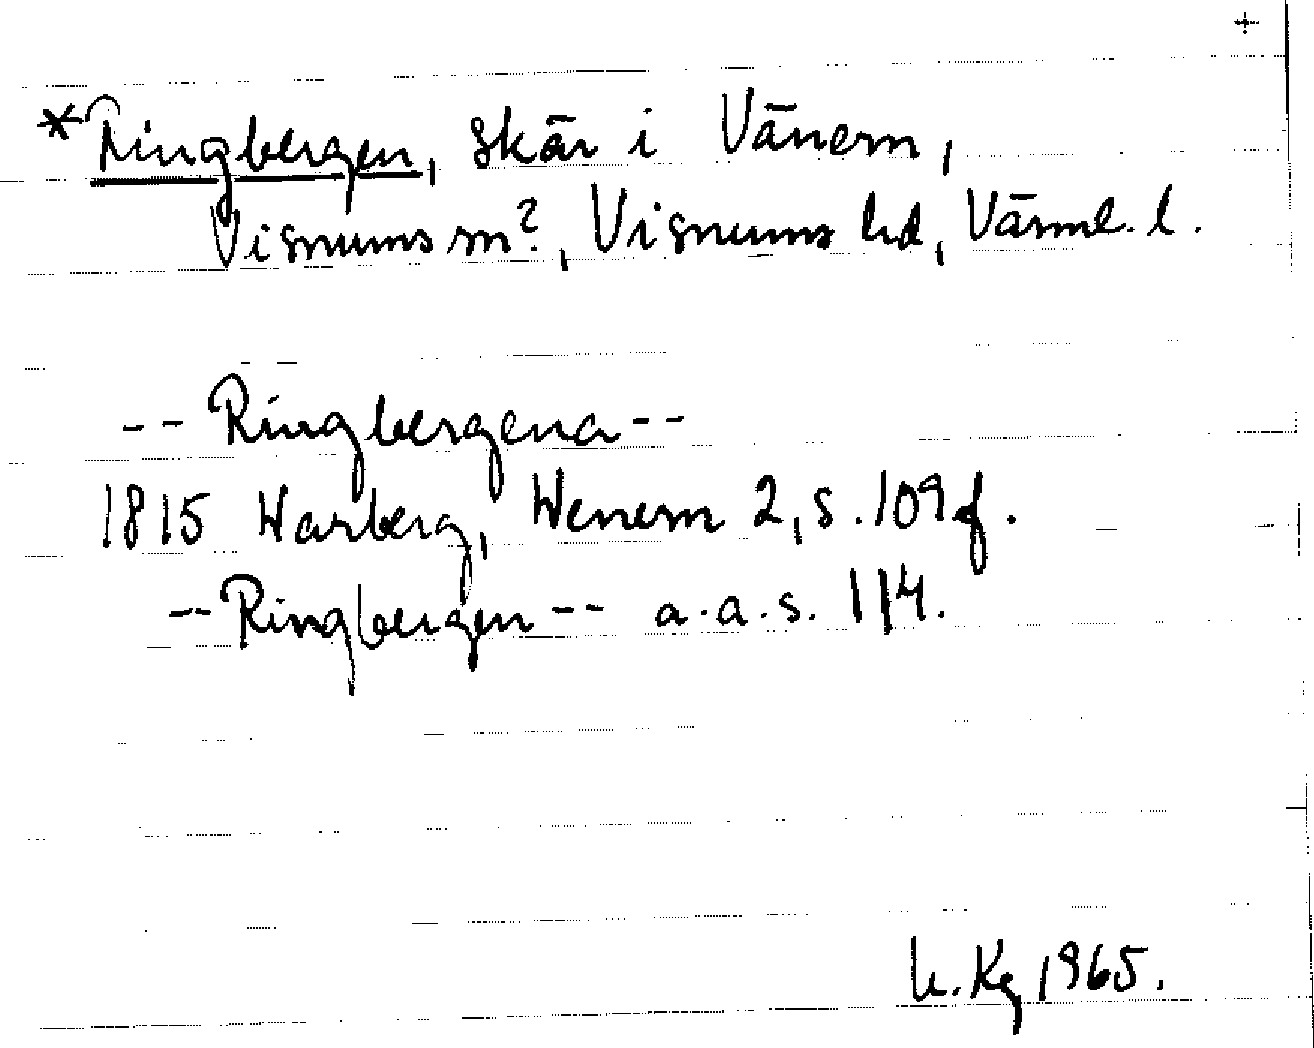 *Ringbergen, skär i Vänern,
Visnums sn?, Visnums hd, Värml. l.
-- Ringbergena --
1815 Warberg, Wenern 2, s. 109 f.
-- Ringbergen -- a.a.s. 114.
1965.